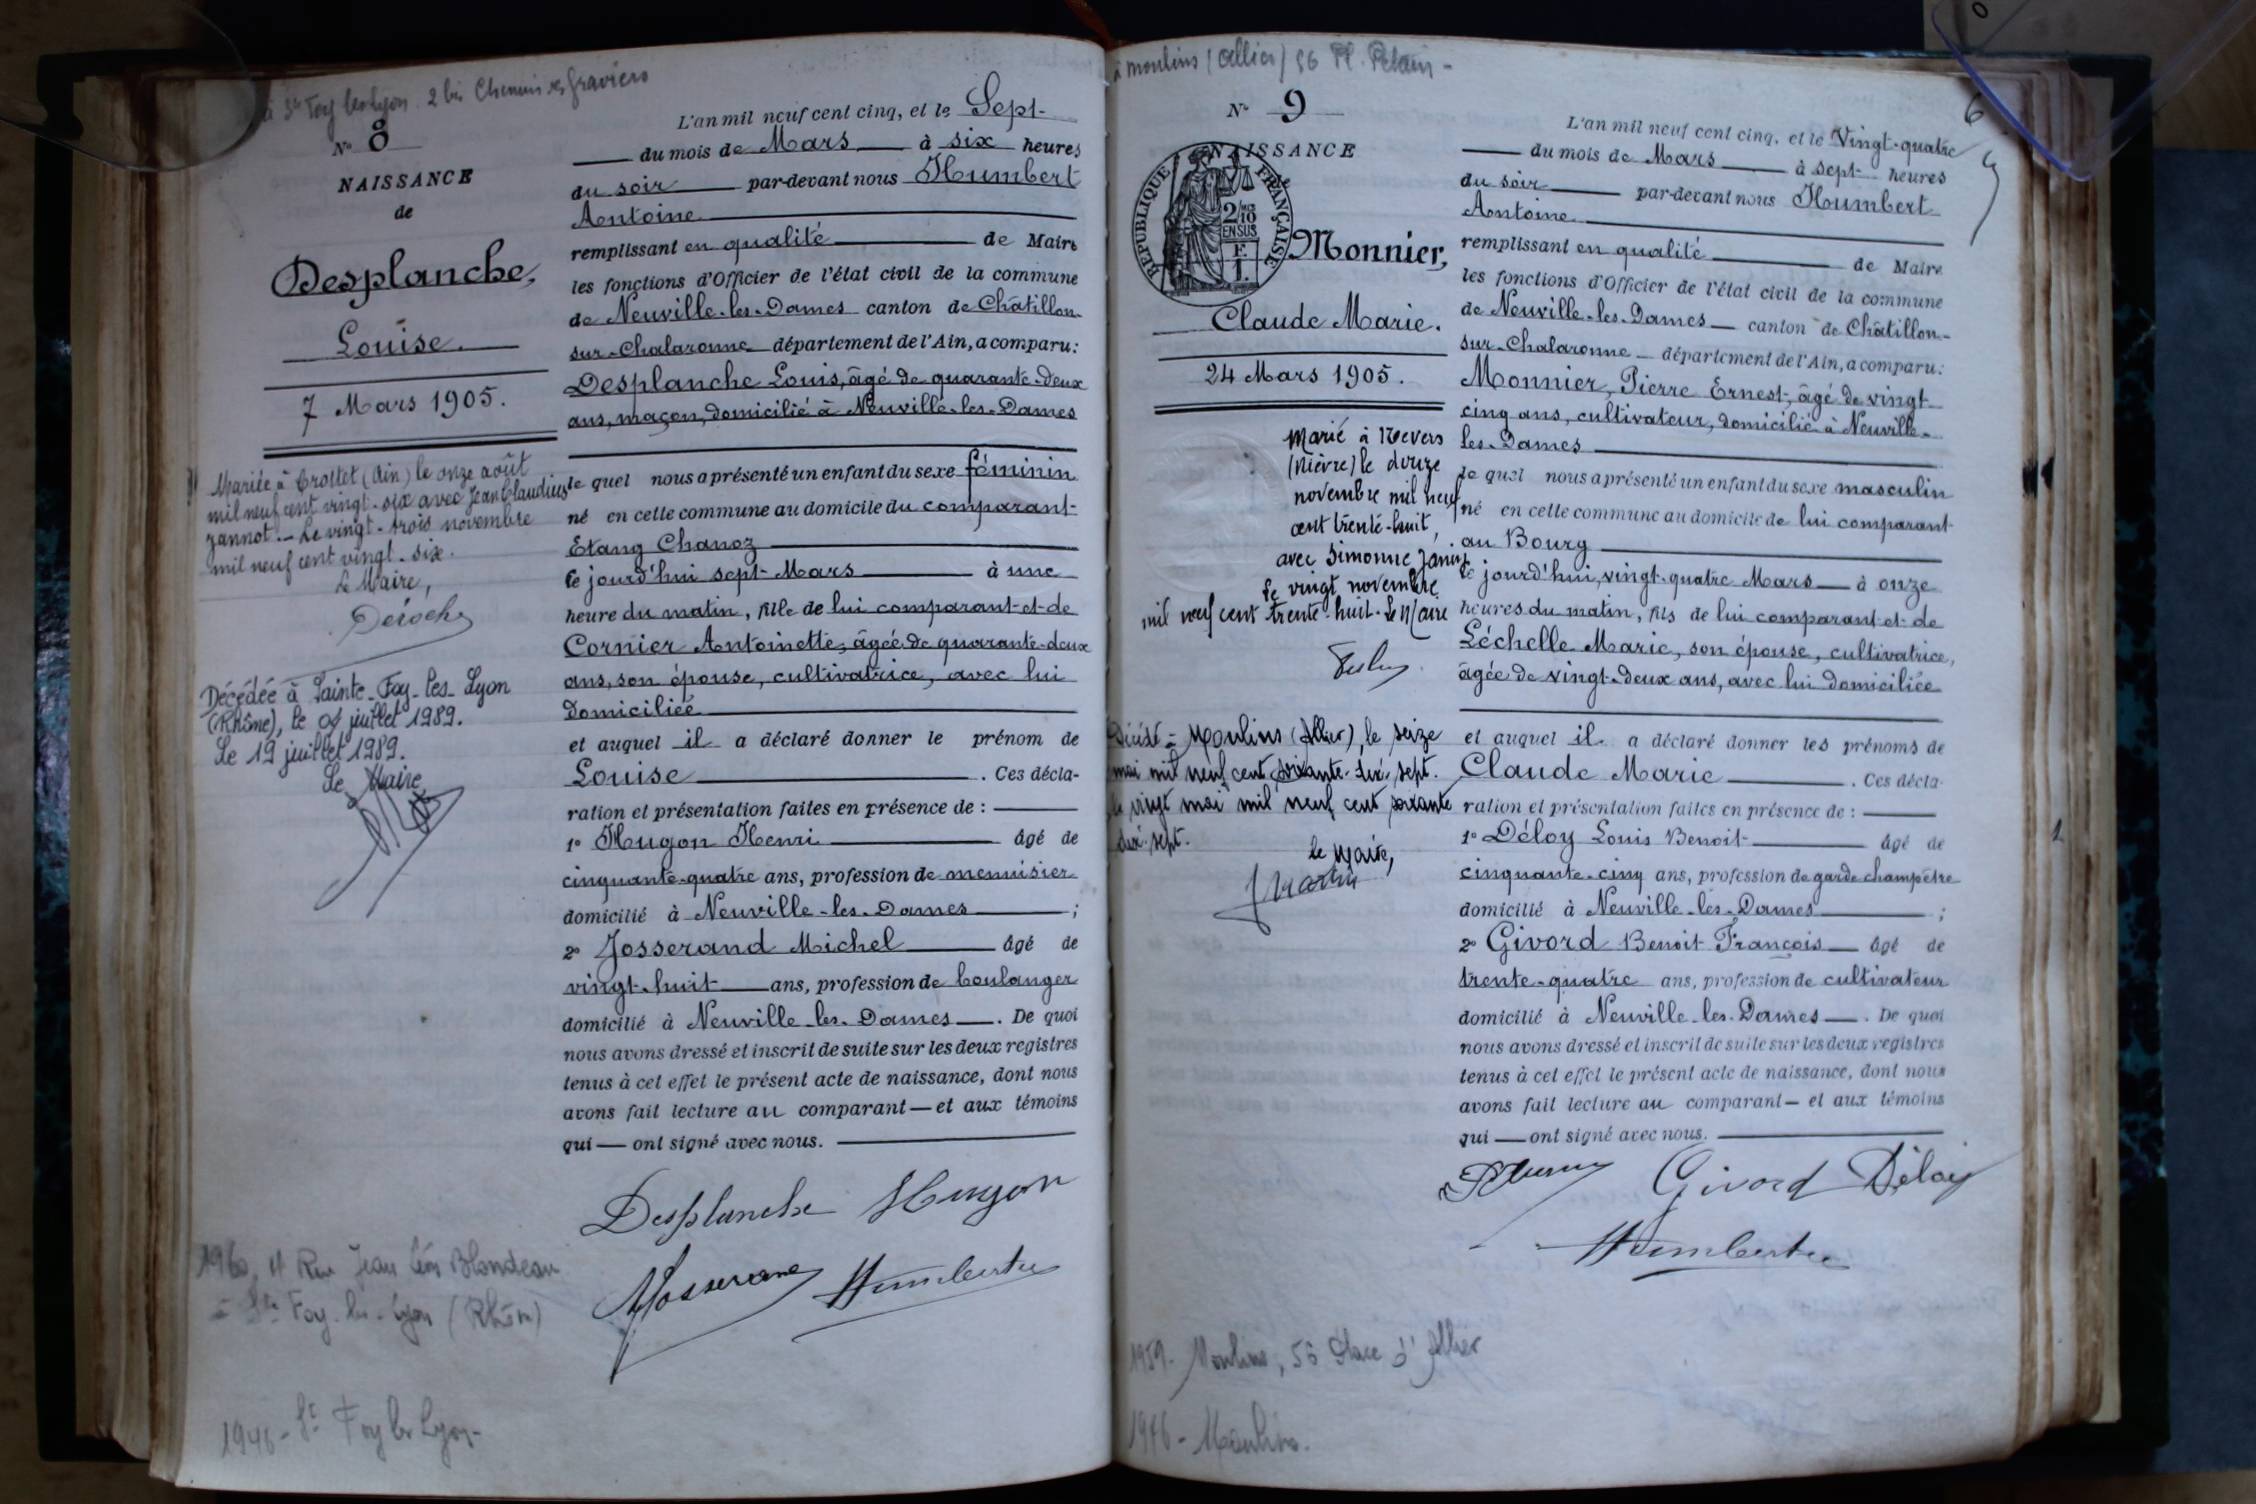 à Ste Foy les Lyon 2 bis Chemin des Graviers
No 8
NAISSANCE
de
Desplanche,
Louise.
7 Mars 1905.
Mariée à Crottet (Ain) le onze août
mil neuf cent vingt-six avec Jean Claudius
Jannot. - Le vingt-trois novembre
mil neuf cent vingt-six.
Le Maire,
Décédée à Sainte-Foy-les-Lyon
(Rhône), le juillet 1989.
Le 19 juillet 1989.
Le Maire
1960, Rue Jean Léon Blondeau
à Ste Foy-les-Lyon (Rhône)
1946 - Ste Foy les Lyon -
L'an mil neuf cent cinq, et le Sept
du mois de Mars à six heures
du soir par-devant nous Humbert
Antoine
remplissant en qualité de Maire
les fonctions d'Officier de l'état civil de la commune
de Neuville-les-Dames canton de Châtillon-
sur-Chalaronne département de l'Ain, a comparu:
Desplanche Louis, âgé de quarante-deux
ans, maçon, domicilié à Neuville-les-Dames
le quel nous a présenté un enfant du sexe féminin
né en cette commune au domicile du comparant
Etang Chanoz
le jourd'hui sept Mars à une
heure du matin, fille de lui comparant et de
Cornier Antoinette, âgée de quarante-deux
ans, son épouse, cultivatrice, avec lui
domiciliée
et auquel il a déclaré donner le prénom de
Louise. Ces décla-
ration et présentation faites en présence de :
1o Hugon Henri âgé de
cinquante-quatre ans, profession de menuisier
domicilié à Neuville-les-Dames ;
2o Josserand Michel âgé de
vingt-huit ans, profession de boulanger
domicilié à Neuville-les-Dames. De quoi
nous avons dressé et inscrit de suite sur les deux registres
tenus à cet effet le présent acte de naissance, dont nous
avons fait lecture au comparant — et aux témoins
qui — ont signé avec nous.
Desplanche Hugon
Josserand Humbert
à Moulins (Allier) 56 Pl. Pétain -
No 9
NAISSANCE
RÉPUBLIQUE FRANÇAISE
2/10
EN SUS
Monnier,
Claude Marie.
24 Mars 1905.
Marié à Nevers
(Nièvre) le douze
novembre mil neuf
cent trente-huit,
avec Simonne
Le vingt novembre
mil neuf cent trente-huit. Le Maire
Décédé à Moulins (Allier), le seize
mai mil neuf cent soixante-dix-sept.
Le vingt mai mil neuf cent soixante
dix-sept.
le Maire,
1959 - Moulins, 56 Place d'Allier
1946 - Moulins.
6
L'an mil neuf cent cinq, et le Vingt-quatre
du mois de Mars à sept heures
du soir par-devant nous Humbert
Antoine
remplissant en qualité de Maire
les fonctions d'Officier de l'état civil de la commune
de Neuville-les-Dames canton de Châtillon-
sur-Chalaronne département de l'Ain, a comparu:
Monnier, Pierre Ernest, âgé de vingt-
cinq ans, cultivateur, domicilié à Neuville-
les-Dames
le quel nous a présenté un enfant du sexe masculin
né en cette commune au domicile de lui comparant
au Bourg
le jourd'hui, vingt-quatre Mars à onze
heures du matin, fils de lui comparant et de
Léchelle Marie, son épouse, cultivatrice,
âgée de vingt-deux ans, avec lui domiciliée
et auquel il a déclaré donner les prénoms de
Claude Marie. Ces décla-
ration et présentation faites en présence de :
1o Déloy Louis Benoit âgé de
cinquante-cinq ans, profession de garde champêtre
domicilié à Neuville-les-Dames ;
2o Givord Benoit François âgé de
trente-quatre ans, profession de cultivateur
domicilié à Neuville-les-Dames. De quoi
nous avons dressé et inscrit de suite sur les deux registres
tenus à cet effet le présent acte de naissance, dont nous
avons fait lecture au comparant — et aux témoins
qui — ont signé avec nous.
Givord Déloy
Humbert